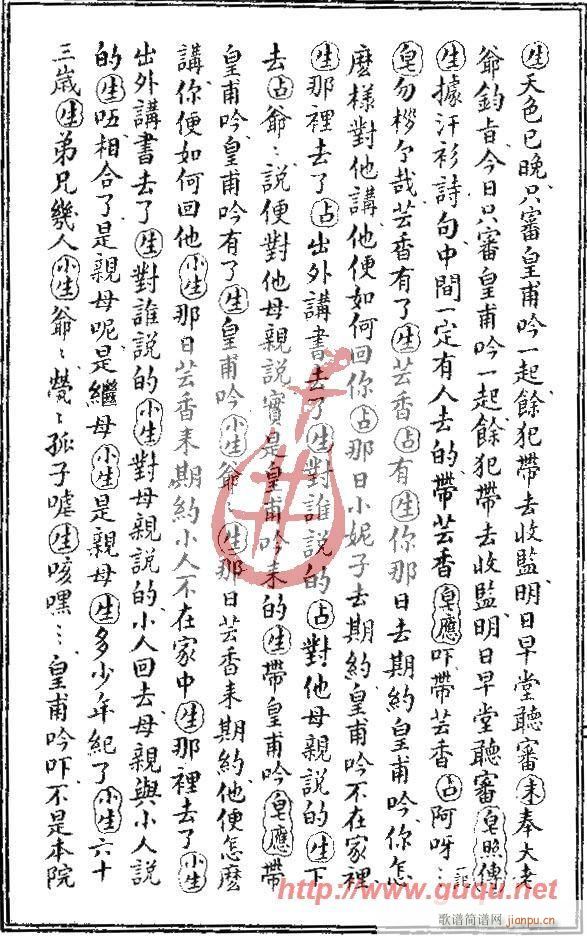 生天色已晚只審皇甫吟一起餘犯帶去收監明日早堂聽審末奉大老
爺鈞旨今日只審皇甫吟一起餘犯帶去收監明日早堂聽審皂照傳
生據汗衫詩句中間一定有人去的帶芸香皂應吓帶芸香占阿呀〻
皂勿椤介哉芸香有了生芸香占有生你那日去期約皇甫吟你怎
麽樣對他講他便如何回你占那日小妮子去期約皇甫吟不在家裡
生那裡去了占出外講書去了生對誰說的占對他母親說的生下
去占爺〻說便對他母親說實是皇甫吟來的生帶皇甫吟皂應帶
皇甫吟皇甫吟有了生皇甫吟小生爺〻生那日芸香來期約他便怎麽
講你便如何回他小生那日芸香來期約小人不在家中生那裡去了小生
出外講書去了生對誰說的小生對母親說的小人回去母親與小人說
的生呸相合了是親母呢是繼母小生是親母生多少年紀了小生六十
三歲生弟兄幾人小生爺〻煢〻孤子嘘生咳嘿〻皇甫吟吓不是本院
http://www.guqu.net
歌谱简谱网
jianpu.cn